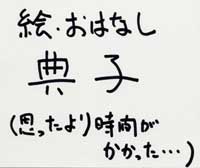 絵・おはなし
典子
(思ったより時間が
かかった…)